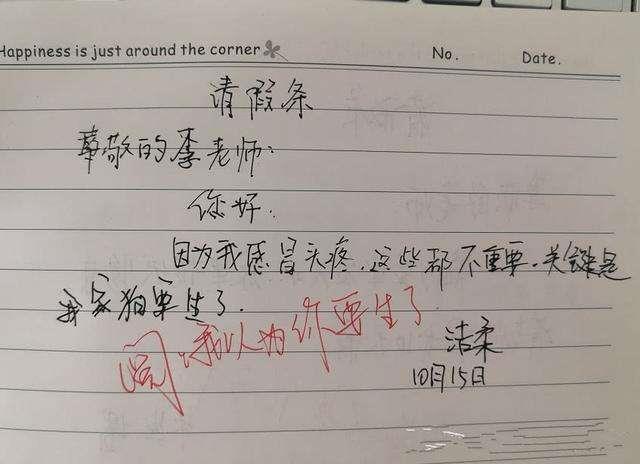 Happiness is just around the corner No. Date.
请假条
尊敬的李老师：
你好.
因为我感冒头疼，这些都不重要.关键是
我家狗要生了.
我以为你要生了
洁柔
10月15日